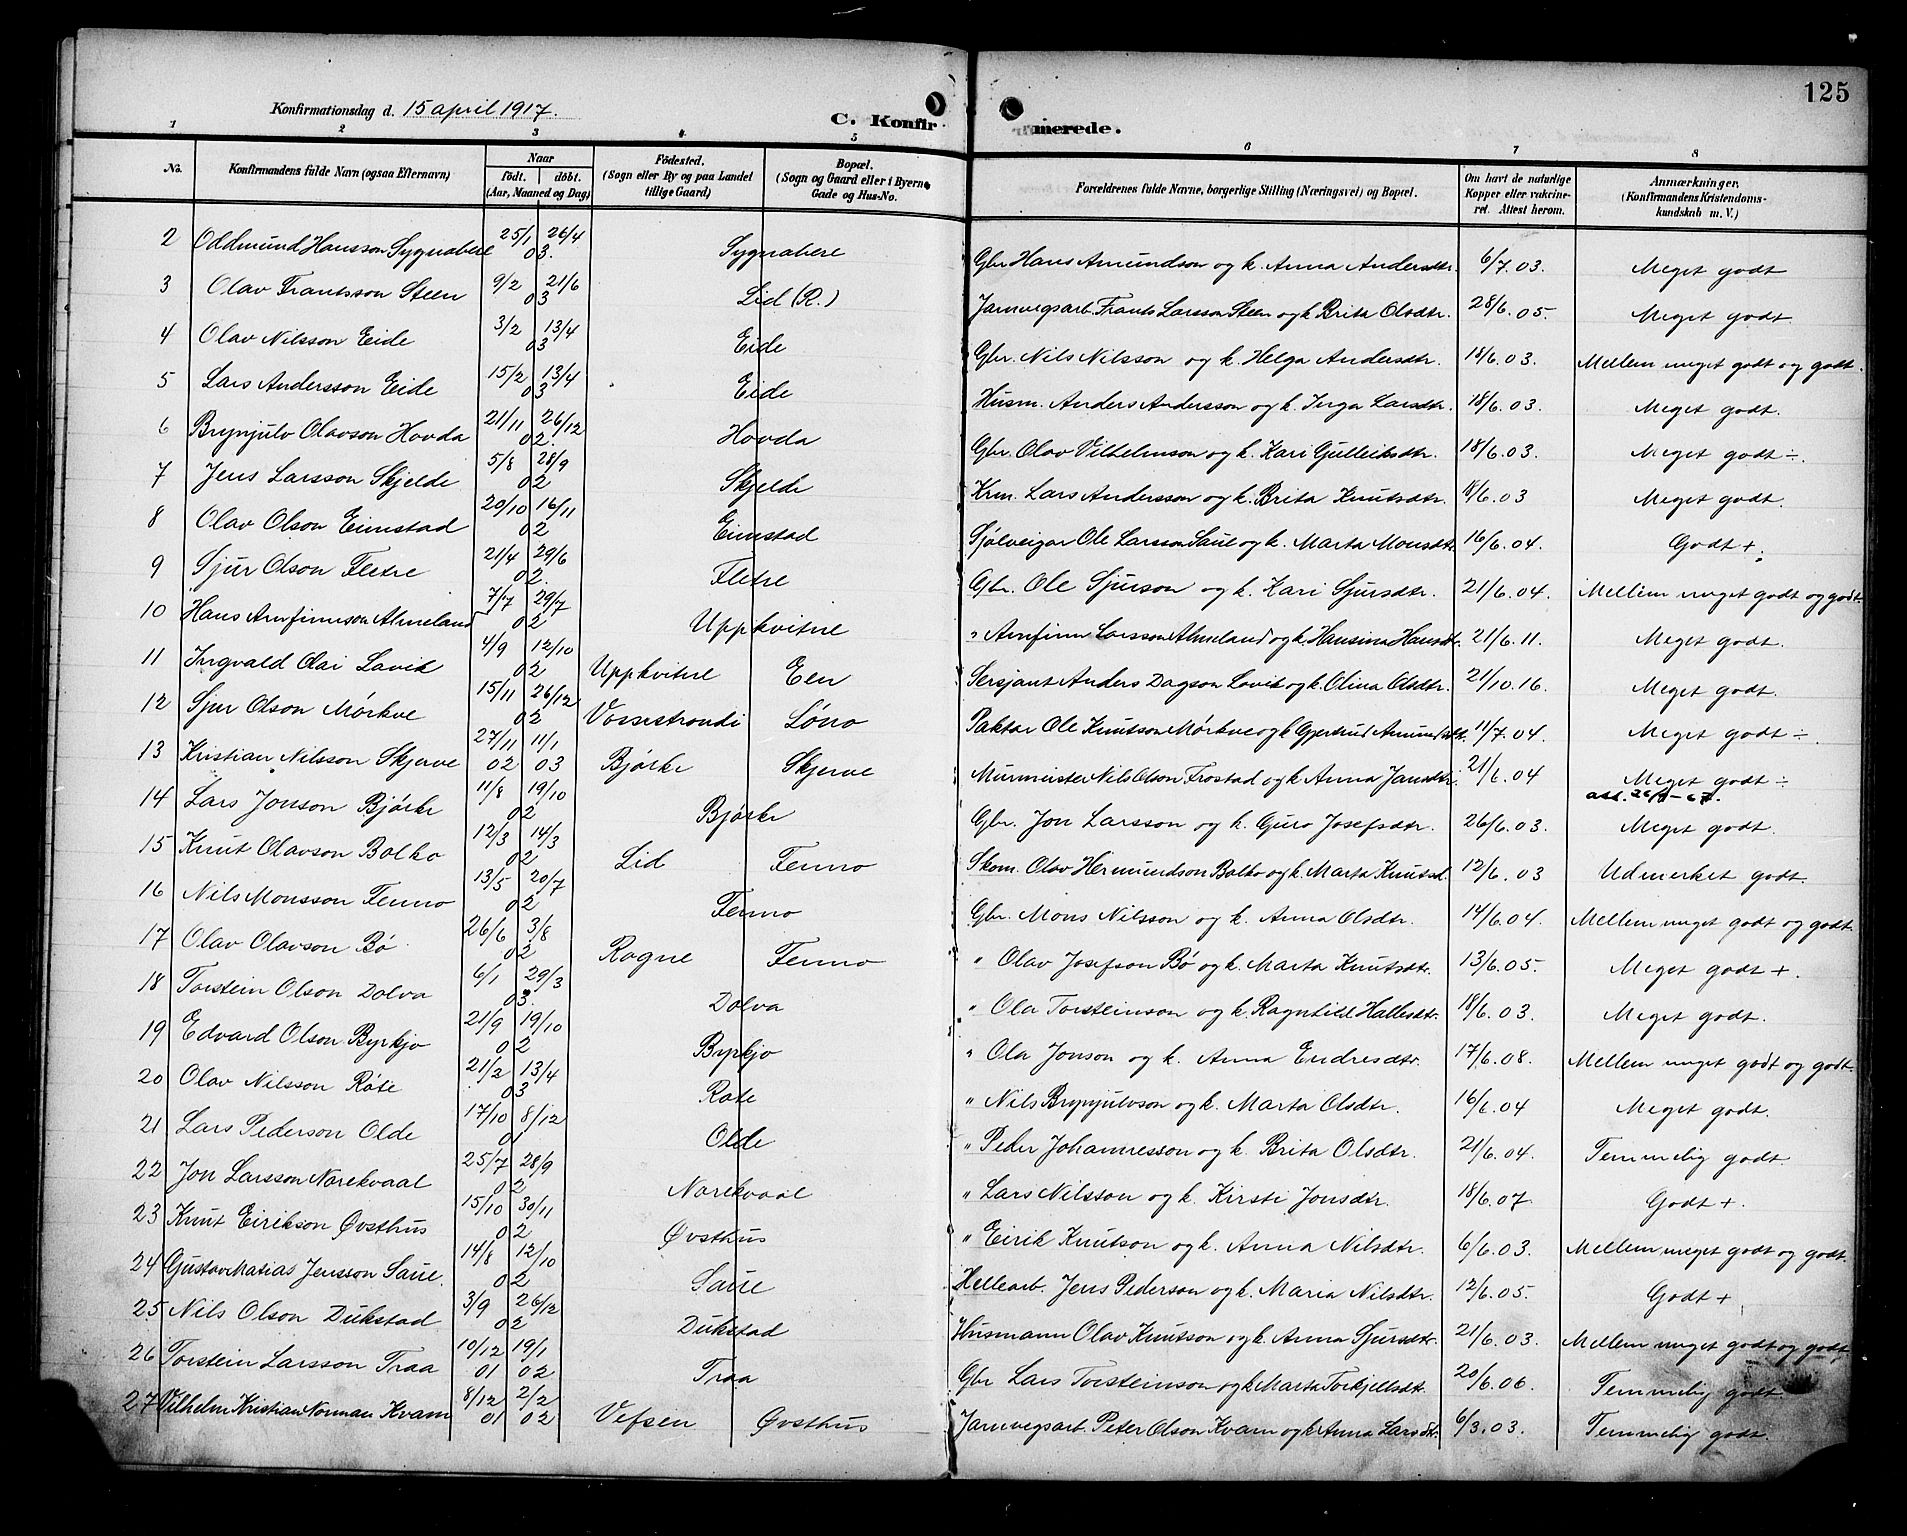 125
Konfirmationsdag d. 15 april 1917.
C. Konfirmerede.
1 2 3 4 5 6 7 8
No. Konfirmandens fulde Navn (ogsaa Efternavn) Naar født. døbt. (Aar, Maaned og Dag) Fødested. (Sogn eller By og paa Landet tillige Gaard) Bopæl. (Sogn og Gaard eller i Byerne Gade og Hus-No. Forældrenes fulde Navne, borgerlige Stilling (Næringsvei) og Bopæl. Om havt de naturlige Kopper eller vakcineret. Attest herom. Anmærkninger. (Konfirmandens Kristendomskundskab m. V.)
2 Oddmund Hansson Sygnabere 25/1 26/4 03. Sygnabere Gbr Hans Amundson og k. Anna Andersdtr. 6/7.03. Meget godt
3 Olav Frantsson Steen 9/2 21/6 03 Lid (R.) Jarnvegsarb. Frants Larsson Steen og k Brita Olsdtr. 28/6.05. Meget godt.
4 Olav Nilsson Eide 3/2 13/4 03 Eide Gbr. Nils Nilsson og k. Helga Andersdtr. 18/6.03. Mellem meget godt og godt.
5 Lars Andersson Eide 15/2 13/4 03 Eide Husm. Anders Andersson og k. Inga Larsdtr. 18/6.03. Meget godt.
6 Brynjulv Olavson Hovda 21/11 26/12 02. Hovda Gbr. Olav Vilhelmson og k. Kari Gulleiksdtr. 18/6.03. Meget godt ÷.
7 Jens Larsson Skjelde 5/8 28/9 02 Skjelde Krm. Lars Andersson og k. Brita Knutsdtr. 18/6.03 Meget godt.
8 Olav Olson Eimstad 20/10 16/11 02 Eimstad Sjølveigar Ole Larsson Saue og k. Marta Monsdtr. 16/6.04. Godt +.
9 Sjur Olson Fletre 21/4 29/6 02. Fletre Gbr. Ole Sjurson og k. Kari Sjursdtr. 21/6.04. Mellem meget godt og godt.
10 Hans Arnfinnson Almeland 7/7 29/7 02 Uppkvitne " Arnfinn Larsson Almeland og k. Hansina Hansdtr. 21/6.11. Meget godt.
11 Ingvald Olai Lavik 4/9 12/10 02 Uppkvitne Een Sersjant Anders Dagson Lavik og k. Olina Olsdtr. 21/10.16. Meget godt.
12 Sjur Olson Mørkve 15/11 26/12 02 Vossestrandi Løno Paktar Ole Knutsson Mørkve og k Gjertrud Amundsdtr. 11/7.04. Meget godt ÷.
13 Kristian Nilsson Skjerve 27/11 11/1 02 03 Bjørke Skjerve Murmeister Nils Olson Frostad og k. Anna Jansdtr. 21/6.04 Meget godt ÷
14 Lars Jonson Bjørke 11/8 19/10 02 Bjørke Gbr. Jon Larsson og k. Guro Josefsdtr. 26/6.03. Meget godt.
15 Knut Olavson Bolko 12/3 14/3 02 Lid Fenno Skom. Olav Hermundson Bolko og k. Marta Knutsd. 12/6.03 Udmerket godt.
16 Nils Monsson Fenno 13/5 20/7 02 Fenno Gbr. Mons Nilsson og k. Anna Olsdtr. 14/6.04 Mellem meget godt og godt.
17 Olav Olavson Bø 26/6 3/8 02 Rogne Fenno " Olav Josefson Bø og k. Marta Knutsdtr. 13/6.05. Meget godt +.
18 Torstein Olson Dolva 6/1 29/3 03. Dolva " Ola Torsteinson og k. Ragnhild Hallesdtr. 18/6.03. Meget godt.
19 Edvard Olson Byrkjo 21/9 19/10 02 Byrkjo " Ola Jonson og k. Anna Endresdtr. 17/6.08. Mellem meget godt og godt.
20 Olav Nilsson Røte 21/2 13/4 03 Røte " Nils Brynjulvson og k. Marta Olsdtr. 16/6.04 Meget godt.
21 Lars Pederson Olde 17/10 8/12 01 Olde " Peder Johannesson og k. Brita Olsdtr. 21/6.04. Temmelig godt
22 Jon Larsson Norekvaal 25/7 28/9 02 Norekvaal " Lars Nilsson og k. Kirsti Jonsdtr. 18/6.07. Godt +.
23 Knut Eirikson Øvsthus 15/10 30/11 02 Øvsthus " Eirik Knutson og k. Anna Nilsdtr. 6/6.03. Mellem meget godt og godt.
24 Gustav Matias Jensson Saue. 14/8 12/10 02 Saue Hellearb. Jens Pederson og k. Maria Nilsdtr. 12/6.05. Godt +
25 Nils Olson Dukstad 3/9 26/12 02 Dukstad Husmann Olav Knutson og k. Anna Sjursdtr. 21/6.03. Mellem meget godt og godt.
26 Torstein Larsson Traa 10/12 19/1 01 02 Traa Gbr Lars Torsteinson og k Marta Torkjellsdtr. 20/6.06. Temmelig godt.
27 Vilhelm Kristian Norman Kvam 8/12 2/2 01 02 Vefsen Øvsthus Jarnvegsarb. Peter Olson Kvam og k Anna Larsdtr. 6/3.03. Temmelig godt.